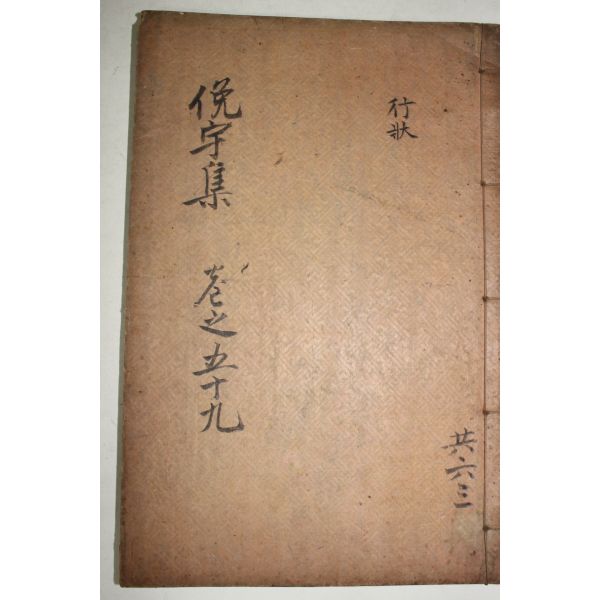 行狀
俛宇集 卷之五十九
共六三